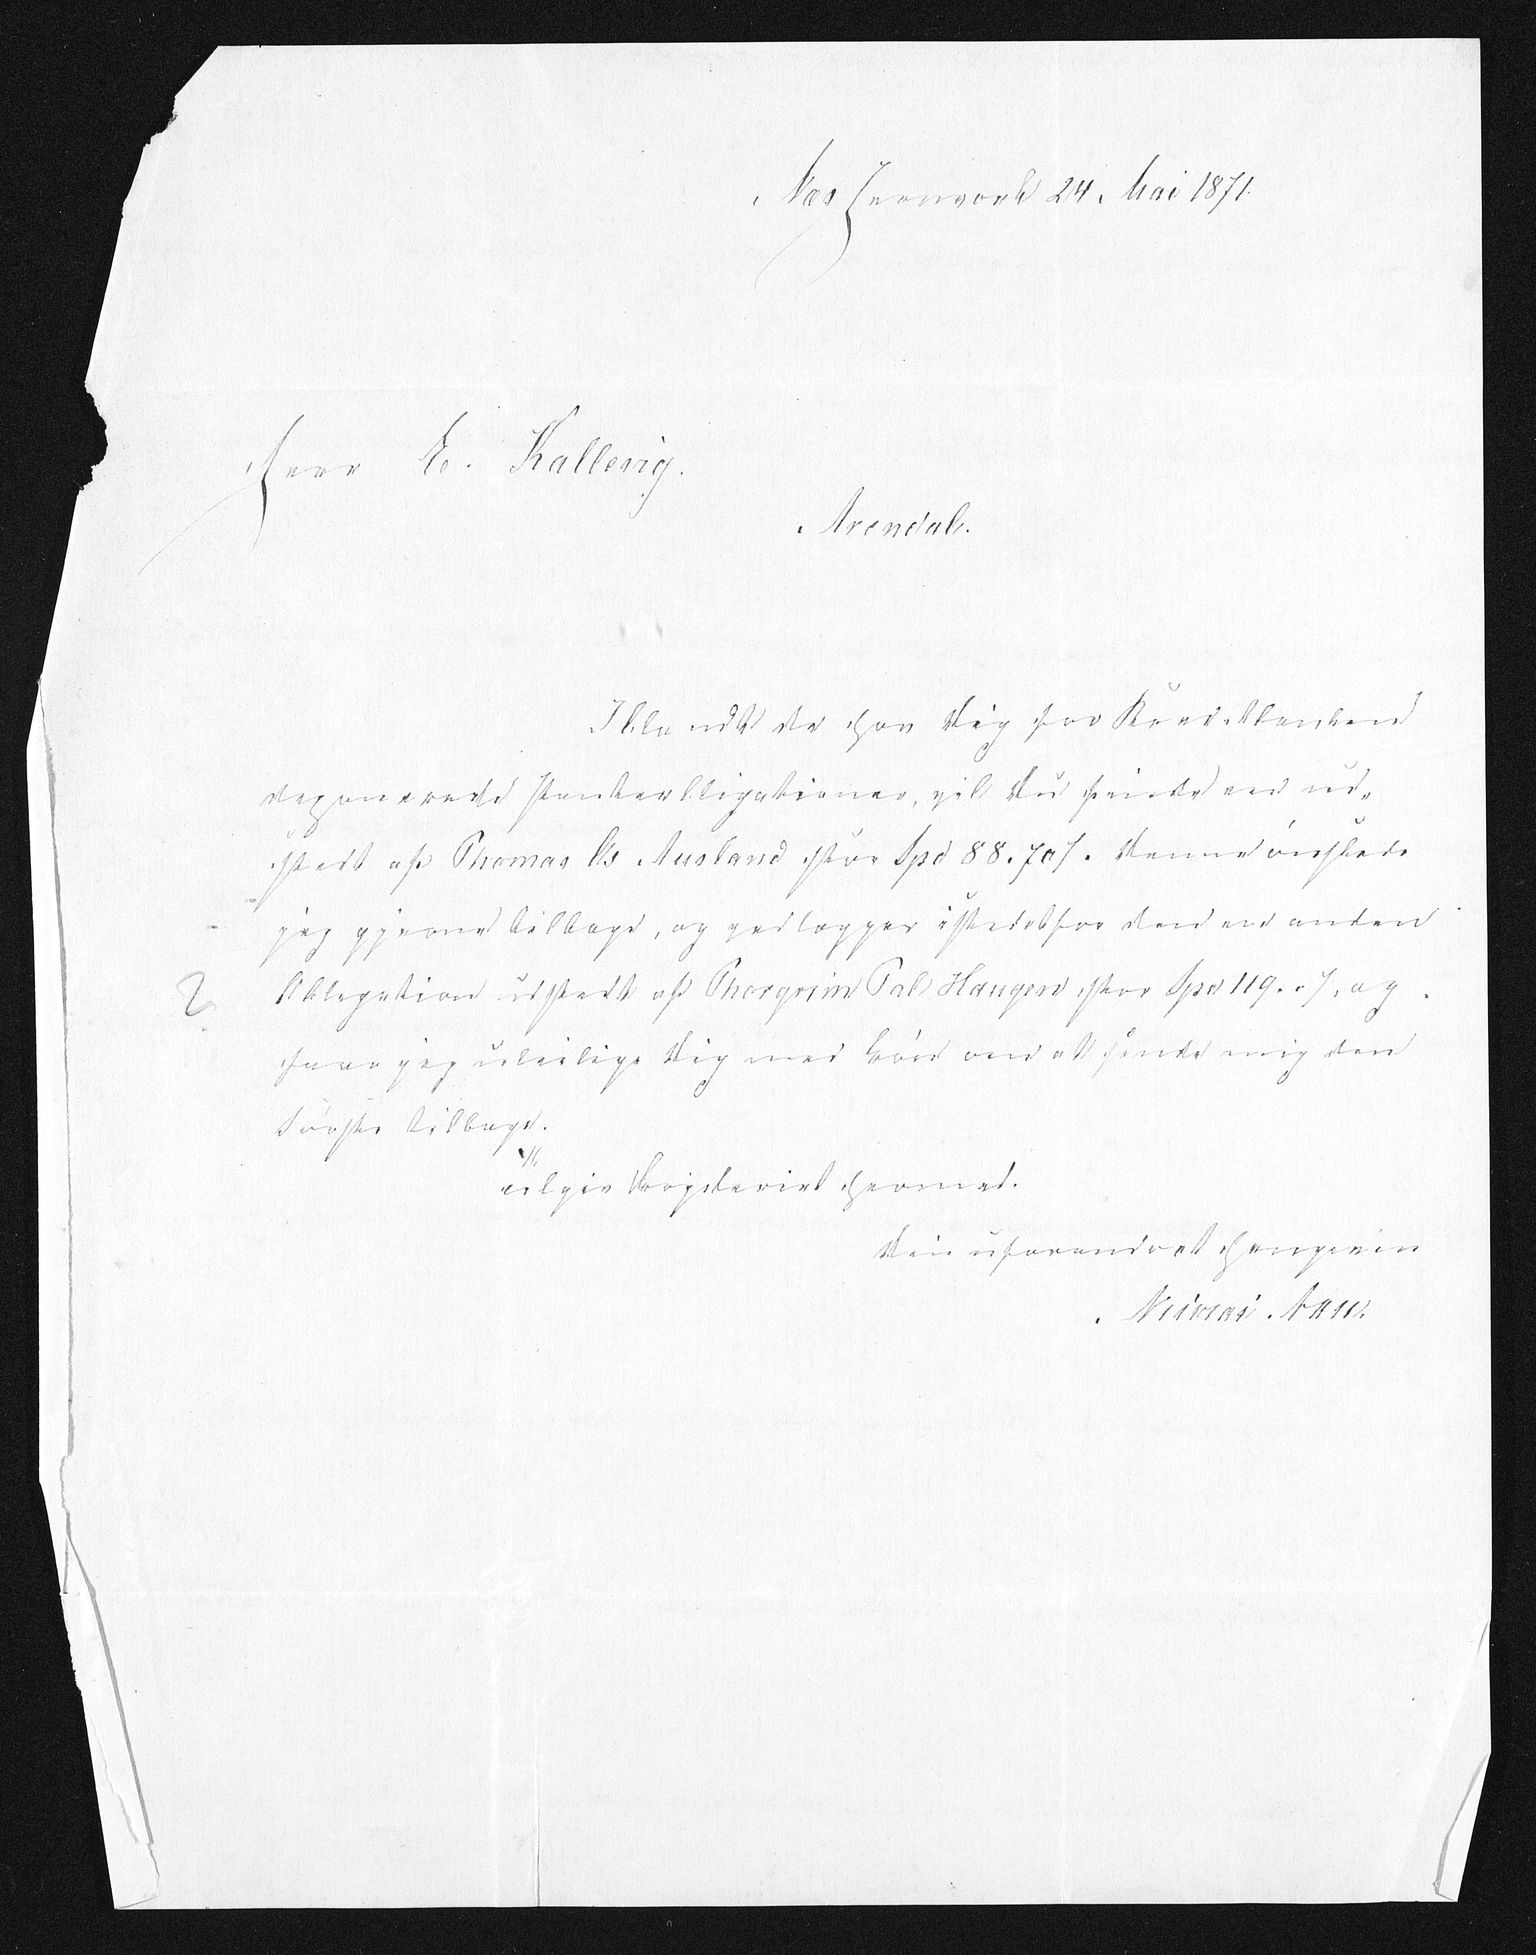 Næs Jernværk 24. Mai 1871.
Herr E. Kallevig.
Arendal.
Iblandt de hos Dig for Kreditbanken
deponerede Panteobligationer, vil Du finde en ud-
stedt af Thomas Aasland stor Spd 88. 70/. Denne ønskede
jeg gjerne tilbage, og vedlægger istedetfor den en anden
Obligation udstedt af Thorgrim Haugen stor Spd 119. - /, og
faar jeg uleilige Dig med Bøn om at sende mig den
første tilbage.
Din uforandret hengivne
Nicolai Aall.